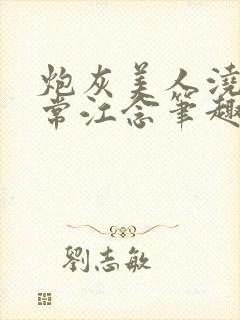 炮灰美人澆
常江念筆趣
劉志敏